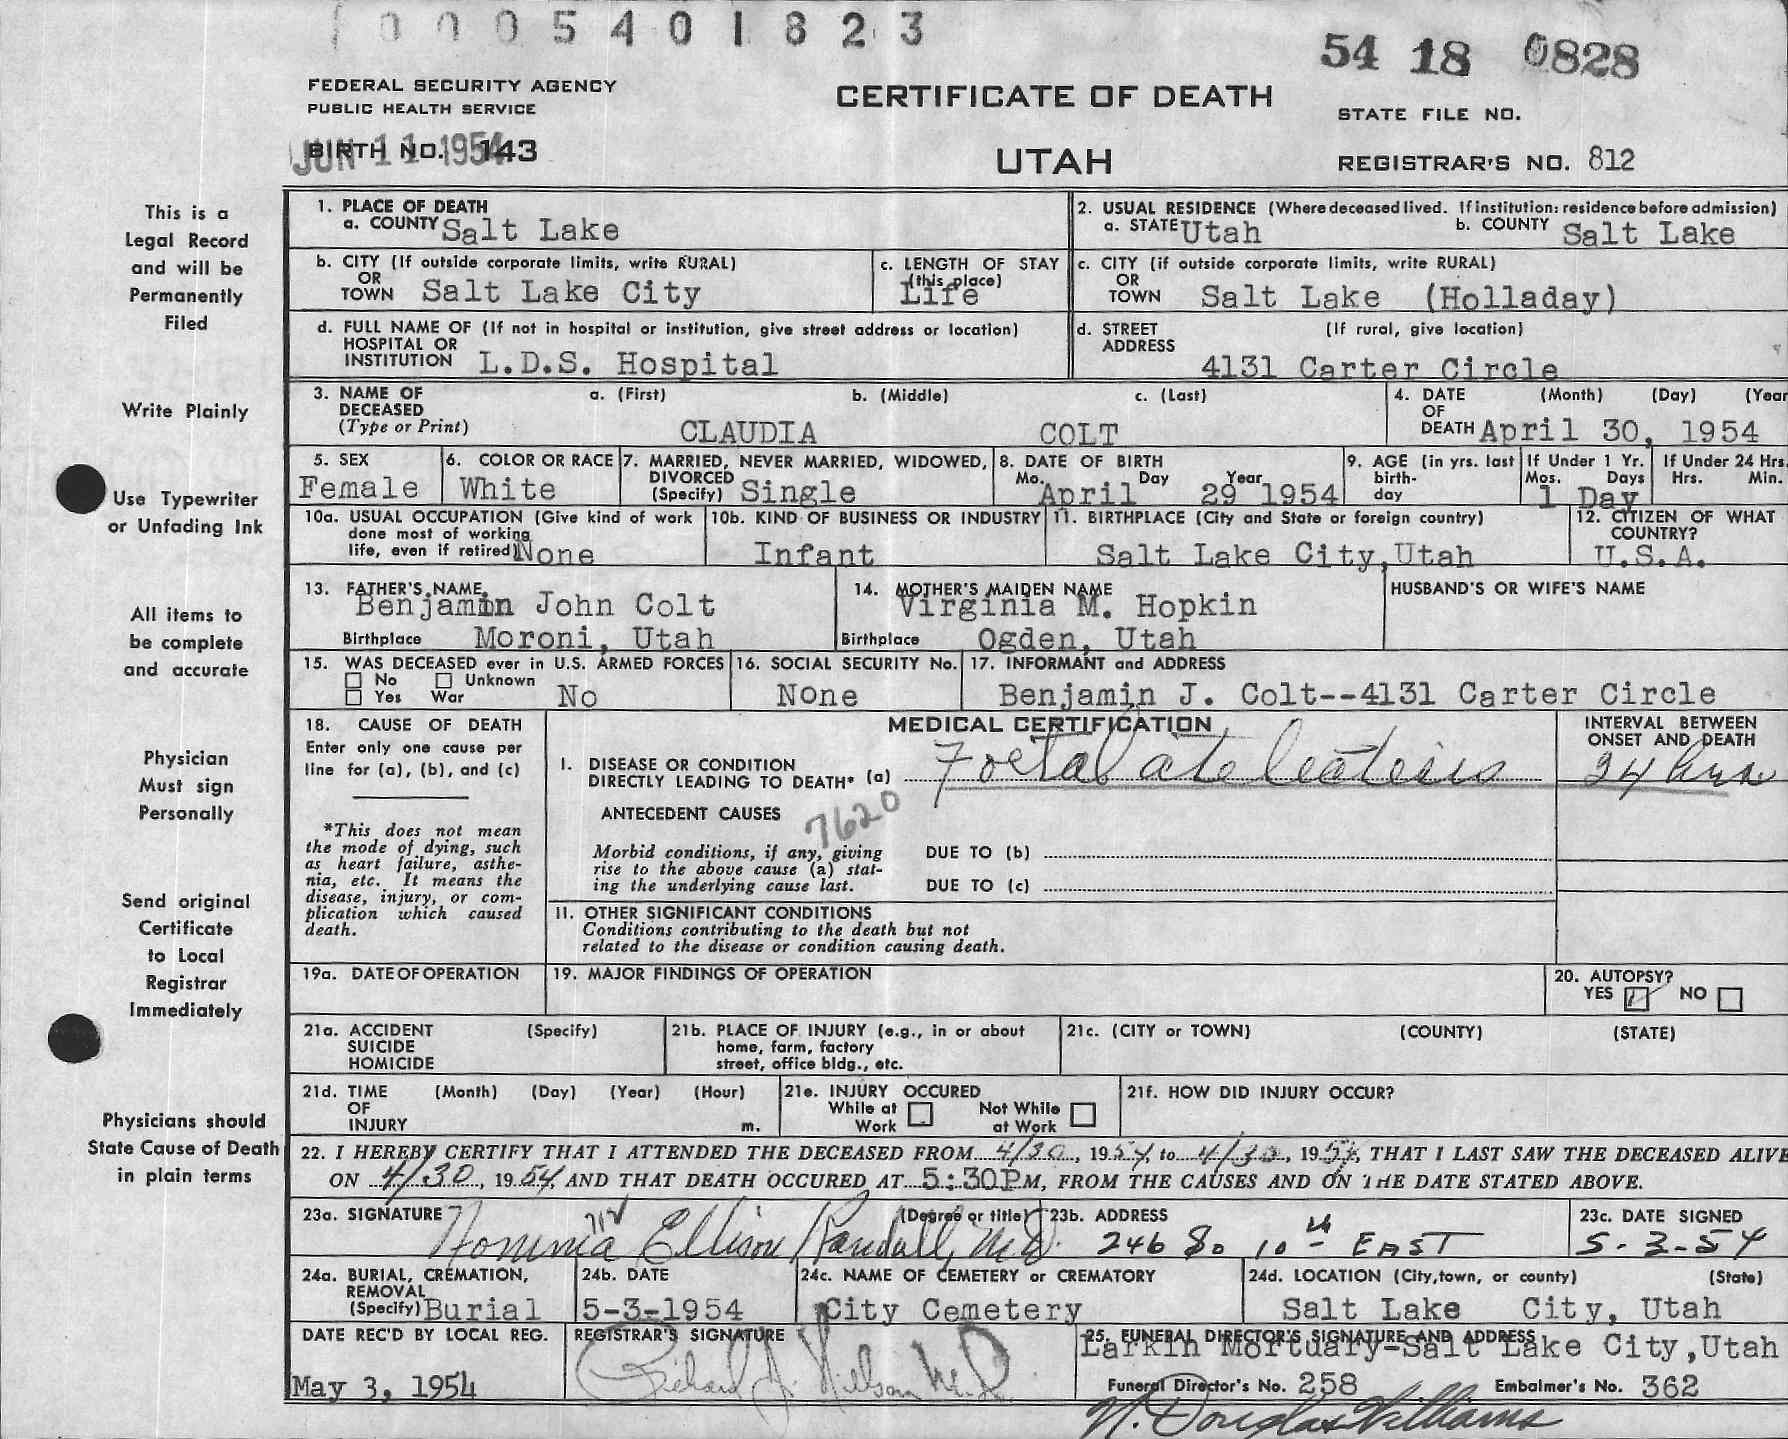 10005401823
54 18 0828
FEDERAL SECURITY AGENCY
PUBLIC HEALTH SERVICE
CERTIFICATE OF DEATH
STATE FILE NO.
BIRTH NO. 143
JUN 11 1954
UTAH
REGISTRAR'S NO. 812
This is a
Legal Record
and will be
Permanently
Filed
Write Plainly
Use Typewriter
or Unfading Ink
All items to
be complete
and accurate
Physician
Must sign
Personally
Send original
Certificate
to Local
Registrar
Immediately
Physicians should
State Cause of Death
in plain terms
1. PLACE OF DEATH
a. COUNTY Salt Lake
2. USUAL RESIDENCE (Where deceased lived. If institution: residence before admission)
a. STATE Utah b. COUNTY Salt Lake
b. CITY (If outside corporate limits, write RURAL)
OR
TOWN Salt Lake City
c. LENGTH OF STAY
(this place)
Life
c. CITY (if outside corporate limits, write RURAL)
OR
TOWN Salt Lake (Holladay)
d. FULL NAME OF (If not in hospital or institution, give street address or location)
HOSPITAL OR
INSTITUTION L.D.S. Hospital
d. STREET (If rural, give location)
ADDRESS
4131 Carter Circle
3. NAME OF a. (First) b. (Middle) c. (Last)
DECEASED
(Type or Print) CLAUDIA COLT
4. DATE (Month) (Day) (Year
OF
DEATH April 30, 1954
5. SEX
Female
6. COLOR OR RACE
White
7. MARRIED, NEVER MARRIED, WIDOWED,
DIVORCED
(Specify) Single
8. DATE OF BIRTH
Mo. Day Year
April 29 1954
9. AGE (in yrs. last
birth-
day
If Under 1 Yr.
Mos. Days
1 Day
If Under 24 Hrs.
Hrs. Min.
10a. USUAL OCCUPATION (Give kind of work
done most of working
life, even if retired) None
10b. KIND OF BUSINESS OR INDUSTRY
Infant
11. BIRTHPLACE (City and State or foreign country)
Salt Lake City, Utah
12. CITIZEN OF WHAT
COUNTRY?
U.S.A.
13. FATHER'S NAME
Benjamin John Colt
Birthplace Moroni, Utah
14. MOTHER'S MAIDEN NAME
Virginia M. Hopkin
Birthplace Ogden, Utah
HUSBAND'S OR WIFE'S NAME
15. WAS DECEASED ever in U.S. ARMED FORCES
No Unknown
Yes War No
16. SOCIAL SECURITY No.
None
17. INFORMANT and ADDRESS
Benjamin J. Colt--4131 Carter Circle
18. CAUSE OF DEATH
Enter only one cause per
line for (a), (b), and (c)
*This does not mean
the mode of dying, such
as heart failure, asthe-
nia, etc. It means the
disease, injury, or com-
plication which caused
death.
MEDICAL CERTIFICATION
I. DISEASE OR CONDITION
DIRECTLY LEADING TO DEATH* (a) Foetal atelectasis
INTERVAL BETWEEN
ONSET AND DEATH
24 hrs
ANTECEDENT CAUSES
7620
Morbid conditions, if any, giving
rise to the above cause (a) stat-
ing the underlying cause last.
DUE TO (b)
DUE TO (c)
II. OTHER SIGNIFICANT CONDITIONS
Conditions contributing to the death but not
related to the disease or condition causing death.
19a. DATE OF OPERATION
19. MAJOR FINDINGS OF OPERATION
20. AUTOPSY?
YES NO
21a. ACCIDENT (Specify)
SUICIDE
HOMICIDE
21b. PLACE OF INJURY (e.g., in or about
home, farm, factory
street, office bldg., etc.
21c. (CITY or TOWN) (COUNTY) (STATE)
21d. TIME (Month) (Day) (Year) (Hour)
OF
INJURY m.
21e. INJURY OCCURED
While at Not While
Work at Work
21f. HOW DID INJURY OCCUR?
22. I HEREBY CERTIFY THAT I ATTENDED THE DECEASED FROM 4/30, 1954, to 4/30, 1954, THAT I LAST SAW THE DECEASED ALIVE
ON 4/30, 1954, AND THAT DEATH OCCURED AT 5:30PM, FROM THE CAUSES AND ON THE DATE STATED ABOVE.
23a. SIGNATURE (Degree or title)
Ellison Randall, M.D.
23b. ADDRESS
246 So 10th EAST
23c. DATE SIGNED
5-3-54
24a. BURIAL, CREMATION,
REMOVAL
(Specify) Burial
24b. DATE
5-3-1954
24c. NAME OF CEMETERY or CREMATORY
City Cemetery
24d. LOCATION (City, town, or county) (State)
Salt Lake City, Utah
DATE REC'D BY LOCAL REG.
May 3, 1954
REGISTRAR'S SIGNATURE
Richard
25. FUNERAL DIRECTOR'S SIGNATURE AND ADDRESS
Larkin Mortuary-Salt Lake City, Utah
Funeral Director's No. 258 Embalmer's No. 362
N. Douglas Williams